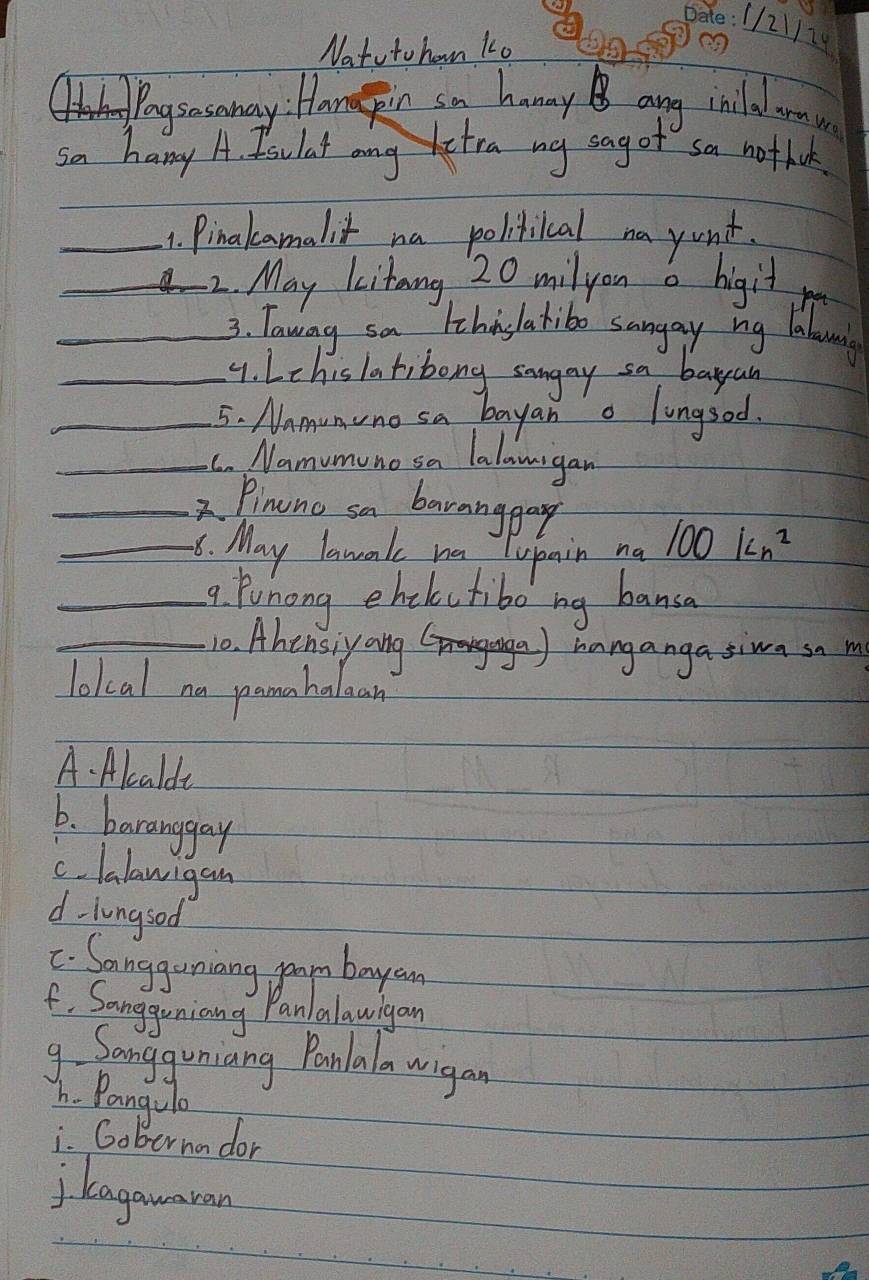 Date: 1/21/24
Natutuhan ko
Pagsasanay: Hanapin sa hanay B ang inilalarawan
sa hanay A. Isulat ang letra ng sagot sa notbuk.
1. Pinakamaliit na politikal na yunit.
2. May kitang 20 milyon o higit pa
3. Tawag sa lehislatibo sangay ng lalawigan
4. Lehislatibong sangay sa bayan
5. Namumuno sa bayan o lungsod.
6. Namumuno sa lalawigan
7. Pinuno sa baranggay
8. May lawak na lupain na 100 km²
9. Punong ehekutibo ng bansa
10. Ahensiyang nanganga siwa sa mg
lokal na pamahalaan
A. Alcalde
b. baranggay
c. lalawigan
d. lungsod
e. Sangguniang pambayan
f. Sangguniang Panlalawigan
g. Sangguniang Panlala wigan
h. Pangulo
i. Gobernador
j. kagawaran